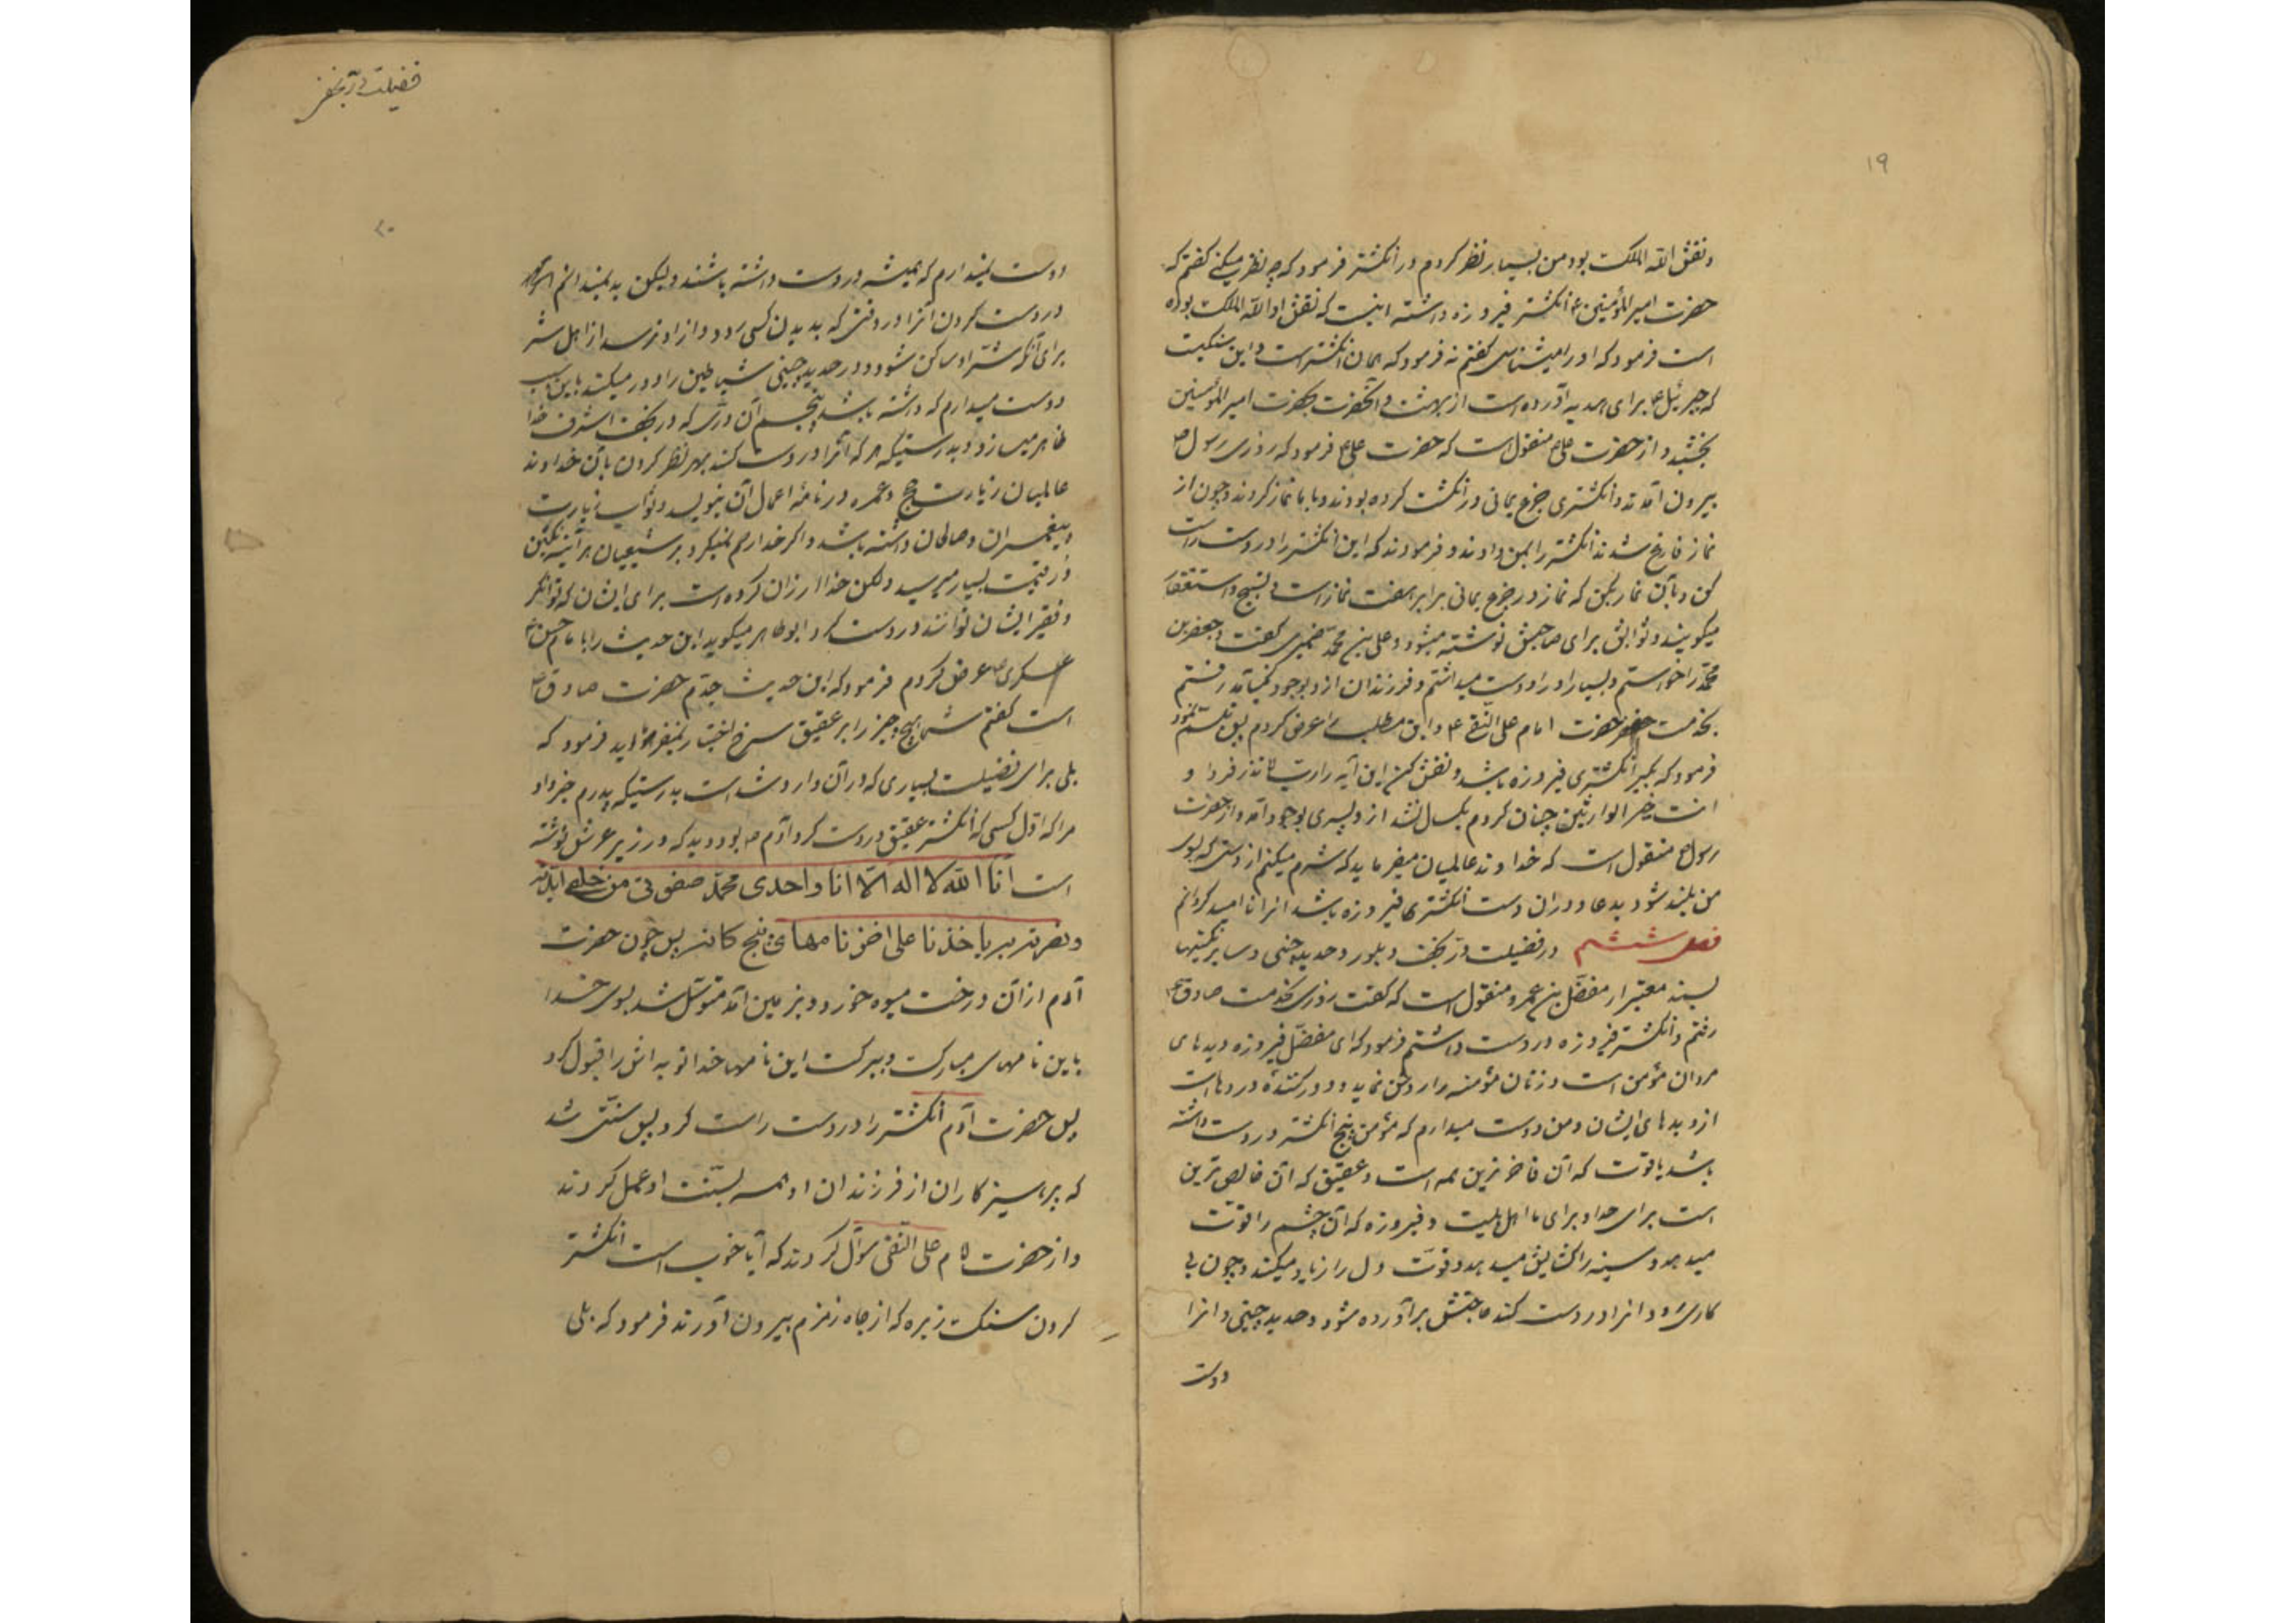 ۱۹
و نقش الله الملک بود من بسیار نظر کردم در انگشتر فرمود که چه نظر میکنی گفتم که
حضرت امیرالمؤمنین ع انگشتر فیروزه داشته اینست که نقش او الله الملک بوده
است فرمود که او را میشناسی گفتم نه فرمود که همان انگشتر است و این سنگیست
که جبرئیل ع برای هدیه آورده است از بهشت و آنحضرت بحضرت امیرالمؤمنین
بخشید و از حضرت علی ع منقول است که حضرت علی ع فرمود که روزی رسول ص
بیرون آمدند و انگشتری جزع یمانی در انگشت کرده بودند و با ما نماز کردند و چون از
نماز فارغ شدند انگشتر را بمن دادند و فرمودند که این انگشتر را در دست راست
کن و بآن نماز بکن که نماز در جزع یمانی برابر هفت نماز است و تسبیح و استغفار
میکویند و ثوابش برای صاحبش نوشته میشود و علی بن محمد ضمیری گفت دختر جعفر بن
محمد را خواستم و بسیار او را دوست میداشتم و فرزندان از او بوجود نمیآمد رفتم
بخدمت حضرت امام علی النقی ع و این مطلب را عرض کردم پس تبسم نمود
فرمود که بگیر انگشتری فیروزه باشد و نقش کن این آیه را رب لا تذر فردا و
انت خیر الوارثین چنان کردم یکسال نشد از او پسری بوجود آمد و از حضرت
رسول ص منقول است که خداوند عالمیان میفرماید که شرم میکنم از دستی که بسوی
من بلند شود بدعا و در آن دست انگشتر فیروزه باشد آنرا ناامید گردانم
فصل ششم در فضیلت در نجف و بلور و حدید چینی و سایر نگینها
بسند معتبر از مفضل بن عمرو منقول است که گفت روزی بخدمت صادق ع
رفتم و انگشتر فیروزه در دست داشتم فرمود که ای مفضل فیروزه دیدهای
مردان مؤمن است و زنان مؤمنه را روشن نماید و دور کننده دردها است
از دیدهای ایشان و من دوست میدارم که مؤمن پنج انگشتر در دست داشته
باشد یاقوت که آن فاخرترین همه است و عقیق که آن خالص ترین
است برای خدا و برای ما اهل بیت و فیروزه که آن چشم را قوت
میدهد و سینه را گشایش میدهد و قوت دل را زیاد میکند و چون پی
کاری رود آنرا در دست کند حاجتش برآورده شود و حدید چینی و آنرا
دوست
فضیلت در نجف
۲۰
دوست نمیدارم که همیشه در دست داشته باشند ولیکن بد نمیدانم
در دست کردن آنرا در وقتی که بدیدن کسی رود و از او ترسد از اهل شر
برای آنکه شر او ساکن شود و در حدید چینی شیاطین را دور میکند باین سبب
دوست میدارم که داشته باشد پنجم آن دری که در نجف اشرف خدا
ظاهر میسازد و بدرستیکه هر که آنرا در دست کند بهر نظر کردن بآن خداوند
عالمیان زیارت حج و عمره در نامه اعمال آن بنویسد و ثواب زیارت
پیغمبران و صالحان داشته باشد و اگر خدا رحم نمیکرد بر شیعیان هر آینه نگین
در قیمت بسیار میرسید ولکن خدا ارزان کرده است برای ایشان که توانگر
و فقیر ایشان توانند در دست کرد ابو طاهر میگوید این حدیث را با امام حسن
عسکری ع عرض کردم فرمود که این حدیث جدم حضرت صادق ع
است گفتم شما هیچ چیز را بر عقیق سرخ اختیار نمیفرمائید فرمود که
بلی برای فضیلت بسیاری که در آن وارد شده است بدرستیکه پدرم خبر داد
مرا که اول کسی که انگشتر عقیق در دست کرد آدم ع بود و دید که در زیر عرش نوشته
است انا الله لا اله الا انا واحدی محمد صفوتی من خلقی ایدته
و نصرته باخذنا علی اخر نامهای پنج کانه پس چون حضرت
آدم از آن درخت میوه خورد و بزمین آمد متوسل شد بسوی خدا
باین نامهای مبارک و ببرکت این نامها خدا توبه اش را قبول کرد
پس حضرت آدم انگشتر را در دست راست کرد پس سنتی شد
که پرهیزکاران از فرزندان او همه بسنت او عمل کردند
و از حضرت امام علی النقی سوآل کردند که آیا خوب است انگشتر
کردن سنگ ریزه که از چاه زمزم بیرون آورند فرمود که بلی